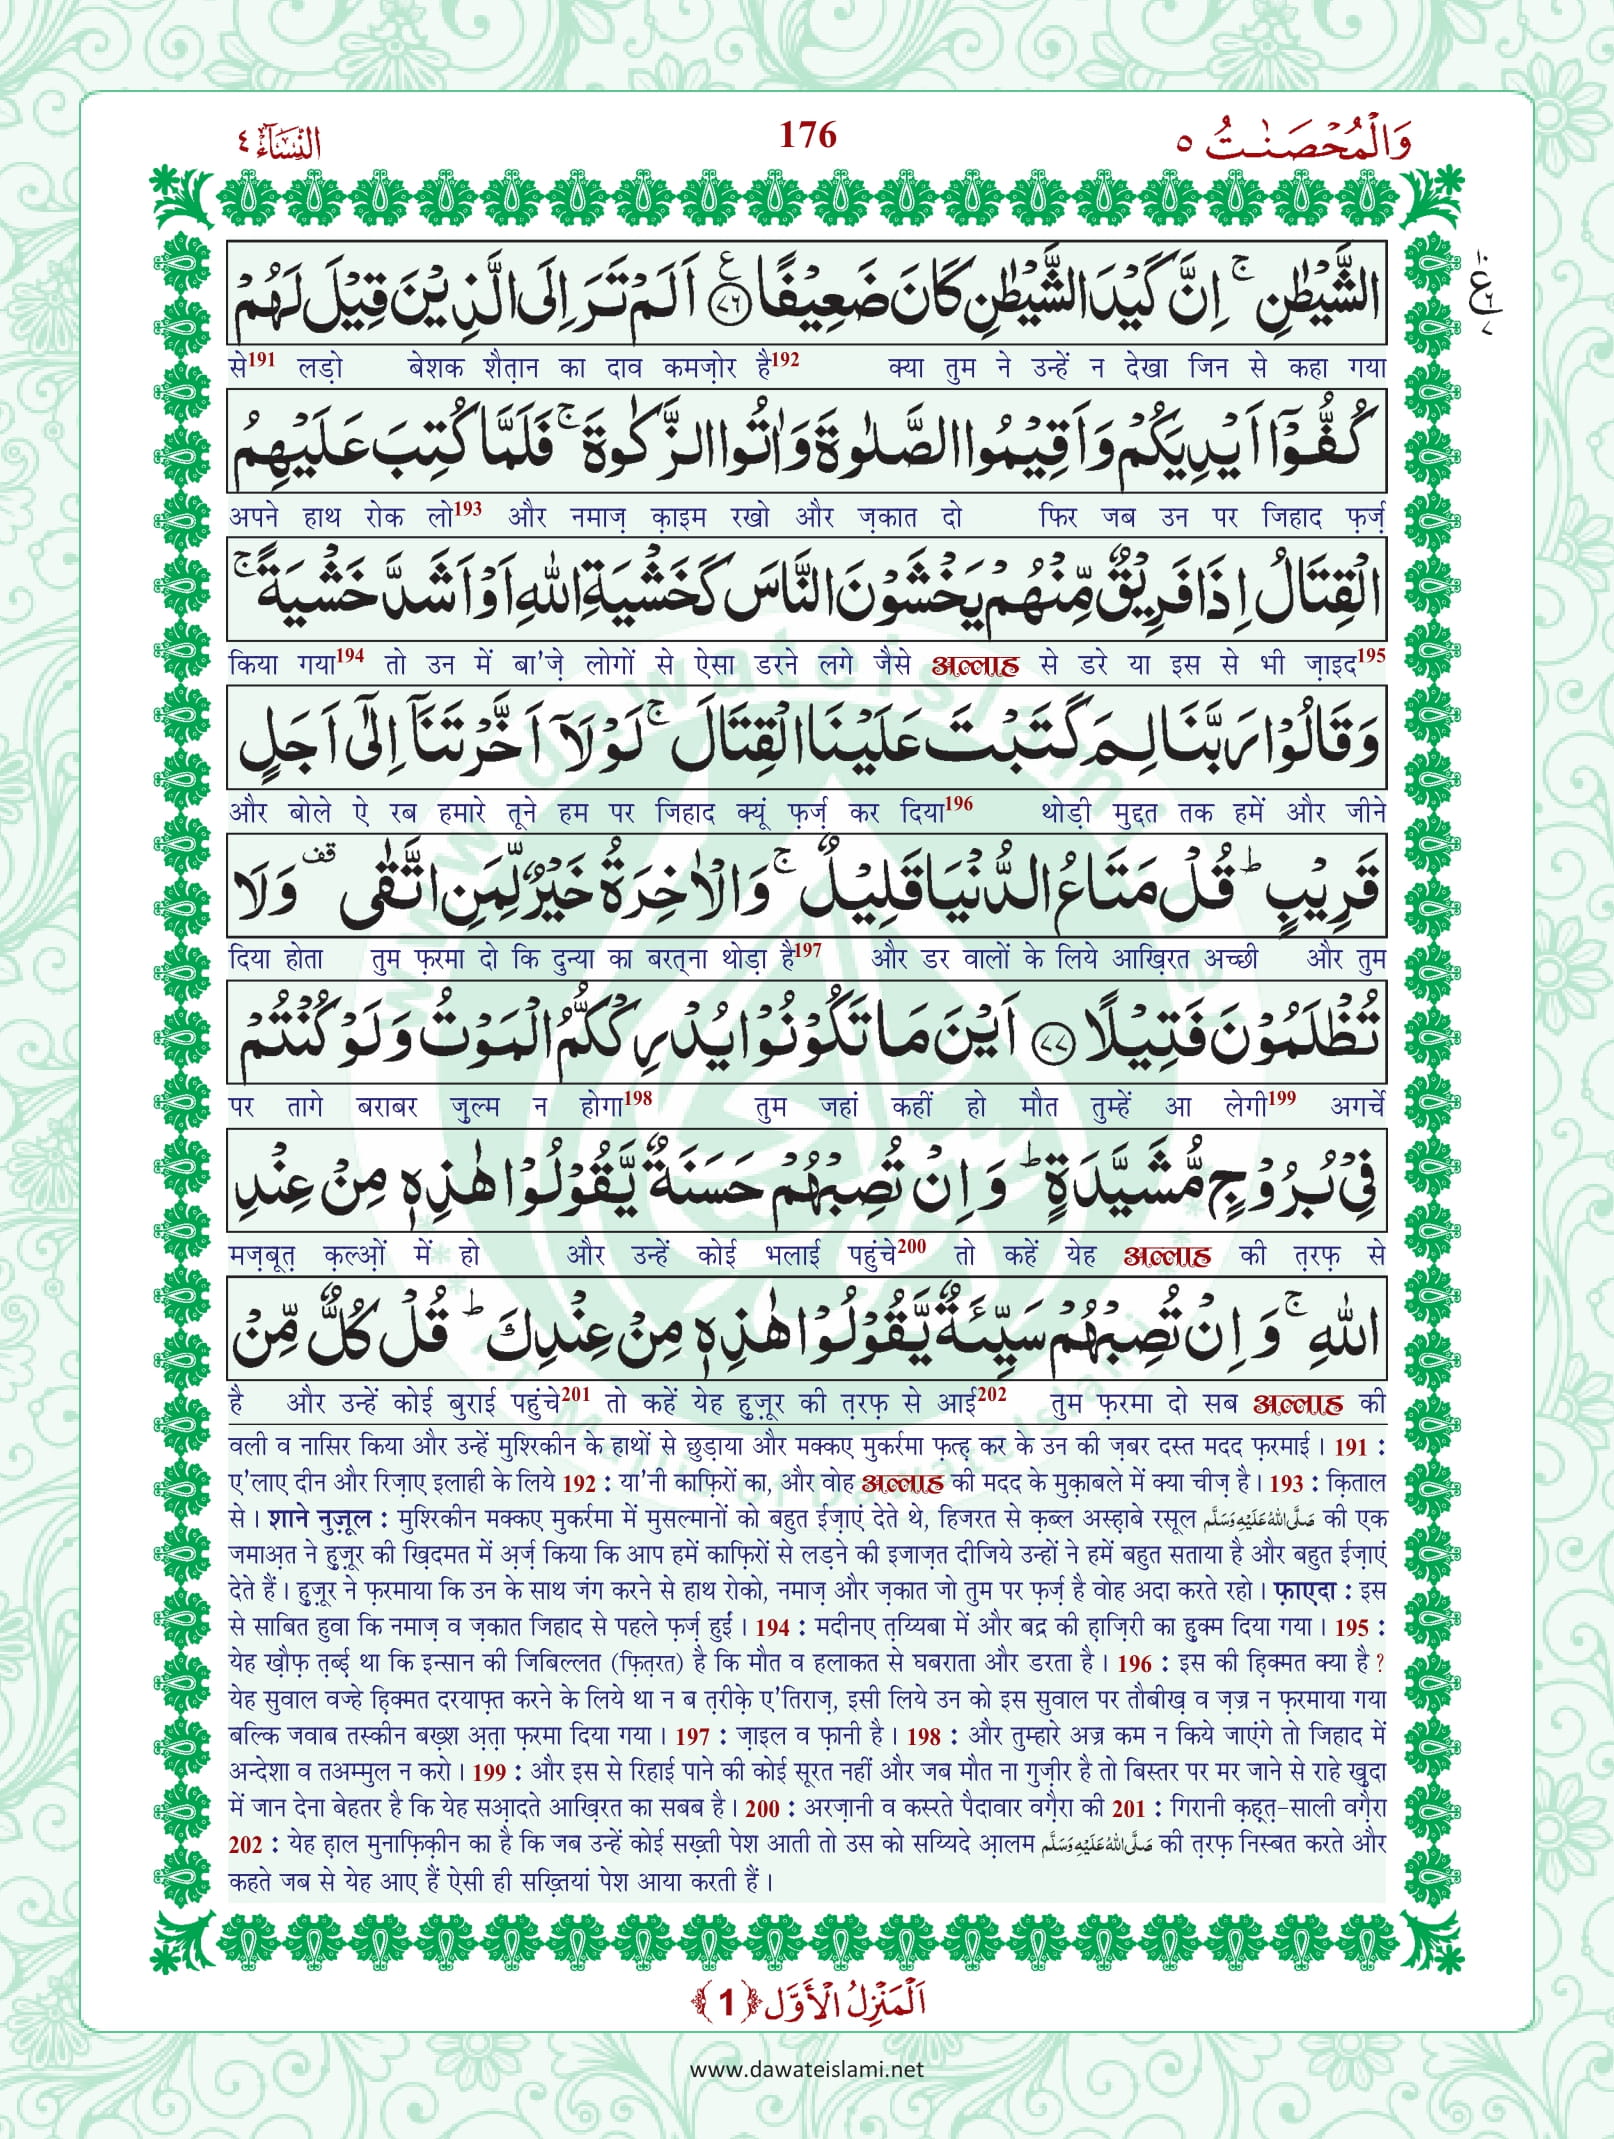 وَالْمُحْصَنٰتُ ٥
176
النِّسَآء ٤
الشَّيْطٰنِ ۚ اِنَّ كَيْدَ الشَّيْطٰنِ كَانَ ضَعِيْفًا ﴿٧٦﴾ ع اَلَمْ تَرَ اِلَى الَّذِيْنَ قِيْلَ لَهُمْ
से191 लड़ो बेशक शैत़ान का दाव कमज़ोर है192 क्या तुम ने उन्हें न देखा जिन से कहा गया
كُفُّوْٓا اَيْدِيَكُمْ وَاَقِيْمُوا الصَّلٰوةَ وَاٰتُوا الزَّكٰوةَ ۚ فَلَمَّا كُتِبَ عَلَيْهِمُ
अपने हाथ रोक लो193 और नमाज़ क़ाइम रखो और ज़कात दो फिर जब उन पर जिहाद फ़र्ज़
الْقِتَالُ اِذَا فَرِيْقٌ مِّنْهُمْ يَخْشَوْنَ النَّاسَ كَخَشْيَةِ اللّٰهِ اَوْ اَشَدَّ خَشْيَةً ۚ
किया गया194 तो उन में बा'ज़े लोगों से ऐसा डरने लगे जैसे अल्लाह से डरे या इस से भी ज़ाइद195
وَقَالُوْا رَبَّنَا لِمَ كَتَبْتَ عَلَيْنَا الْقِتَالَ ۚ لَوْلَآ اَخَّرْتَنَآ اِلٰٓى اَجَلٍ
और बोले ऐ रब हमारे तूने हम पर जिहाद क्यूं फ़र्ज़ कर दिया196 थोड़ी मुद्दत तक हमें और जीने
قَرِيْبٍ ؕ قُلْ مَتَاعُ الدُّنْيَا قَلِيْلٌ ۚ وَالْاٰخِرَةُ خَيْرٌ لِّمَنِ اتَّقٰى قف وَلَا
दिया होता तुम फ़रमा दो कि दुन्या का बरत्ना थोड़ा है197 और डर वालों के लिये आख़िरत अच्छी और तुम
تُظْلَمُوْنَ فَتِيْلًا ﴿٧٧﴾ اَيْنَ مَا تَكُوْنُوْا يُدْرِكْكُّمُ الْمَوْتُ وَلَوْ كُنْتُمْ
पर तागे बराबर ज़ुल्म न होगा198 तुम जहां कहीं हो मौत तुम्हें आ लेगी199 अगर्चे
فِيْ بُرُوْجٍ مُّشَيَّدَةٍ ؕ وَاِنْ تُصِبْهُمْ حَسَنَةٌ يَّقُوْلُوْا هٰذِهٖ مِنْ عِنْدِ
मज़बूत़ क़ल्ओ़ं में हो और उन्हें कोई भलाई पहुंचे200 तो कहें येह अल्लाह की त़रफ़ से
اللّٰهِ ۚ وَاِنْ تُصِبْهُمْ سَيِّئَةٌ يَّقُوْلُوْا هٰذِهٖ مِنْ عِنْدِكَ ؕ قُلْ كُلٌّ مِّنْ
है और उन्हें कोई बुराई पहुंचे201 तो कहें येह हुज़ूर की त़रफ़ से आई202 तुम फ़रमा दो सब अल्लाह की
वली व नासिर किया और उन्हें मुश्रिकीन के हाथों से छुड़ाया और मक्कए मुकर्रमा फ़त्ह़ कर के उन की ज़बर दस्त मदद फ़रमाई। 191 :
ए'लाए दीन और रिज़ाए इलाही के लिये 192 : या'नी काफ़िरों का, और वोह अल्लाह की मदद के मुक़ाबले में क्या चीज़ है। 193 : क़िताल
से। शाने नुज़ूल : मुश्रिकीन मक्कए मुकर्रमा में मुसल्मानों को बहुत ईज़ाएं देते थे, हिजरत से क़ब्ल अस्ह़ाबे रसूल صَلَّى اللهُ عَلَيْهِ وَسَلَّم की एक
जमाअ़त ने हुज़ूर की ख़िदमत में अ़र्ज़ किया कि आप हमें काफ़िरों से लड़ने की इजाज़त दीजिये उन्हों ने हमें बहुत सताया है और बहुत ईज़ाएं
देते हैं। हुज़ूर ने फ़रमाया कि उन के साथ जंग करने से हाथ रोको, नमाज़ और ज़कात जो तुम पर फ़र्ज़ है वोह अदा करते रहो। फ़ाएदा : इस
से साबित हुवा कि नमाज़ व ज़कात जिहाद से पहले फ़र्ज़ हुईं। 194 : मदीनए त़य्यिबा में और बद्र की ह़ाज़िरी का हुक्म दिया गया। 195 :
येह ख़ौफ़ त़ब्ई था कि इन्सान की जिबिल्लत (फ़ित़रत) है कि मौत व हलाकत से घबराता और डरता है। 196 : इस की ह़िक्मत क्या है ?
येह सुवाल वज्हे ह़िक्मत दरयाफ़्त करने के लिये था न ब त़रीक़े ए'तिराज़, इसी लिये उन को इस सुवाल पर तौबीख़ व ज़ज्र न फ़रमाया गया
बल्कि जवाब तस्कीन बख़्श अ़त़ा फ़रमा दिया गया। 197 : ज़ाइल व फ़ानी है। 198 : और तुम्हारे अज्र कम न किये जाएंगे तो जिहाद में
अन्देशा व तअम्मुल न करो। 199 : और इस से रिहाई पाने की कोई सूरत नहीं और जब मौत ना गुज़ीर है तो बिस्तर पर मर जाने से राहे ख़ुदा
में जान देना बेहतर है कि येह सआ़दते आख़िरत का सबब है। 200 : अरज़ानी व कस्रते पैदावार वग़ैरा की 201 : गिरानी क़ह़त़-साली वग़ैरा
202 : येह ह़ाल मुनाफ़िक़ीन का है कि जब उन्हें कोई सख़्ती पेश आती तो उस को सय्यिदे आ़लम صَلَّى اللهُ عَلَيْهِ وَسَلَّم की त़रफ़ निस्बत करते और
कहते जब से येह आए हैं ऐसी ही सख़्तियां पेश आया करती हैं।
اَلْمَنْزِلُ الْأَوَّل ﴿1﴾
www.dawateislami.net